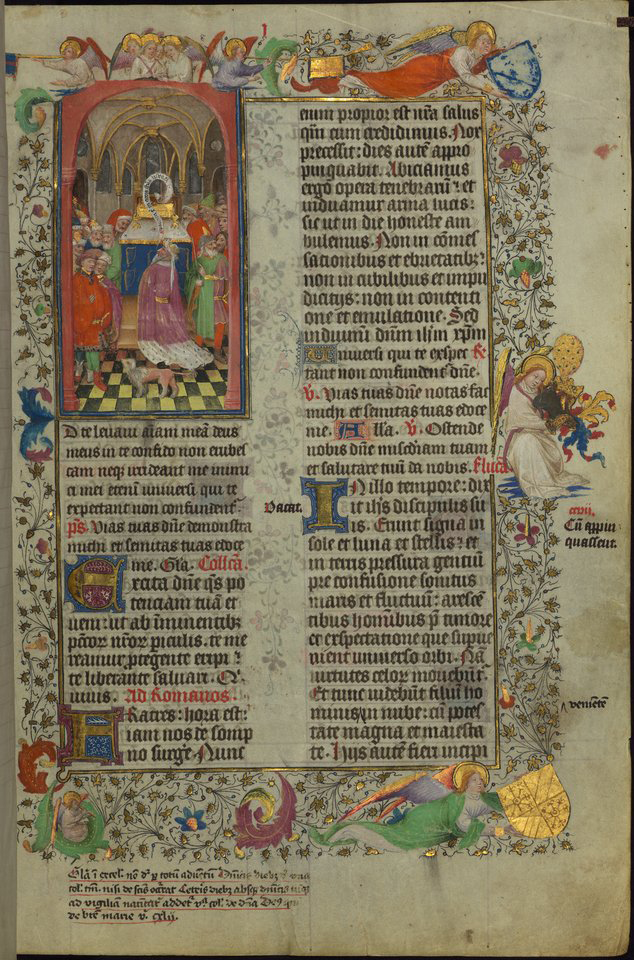 D te levavi aīam meā deus
meus in te confido non erubes
cam neq; irrideant me inimi
ci mei etenī universi qui te
expectant non confundent͛.
p̄s. Vias tuas dn̄e demonstra
michi et semitas tuas edoce
me. Gl̄a. Collc̄a.
Excita dn̄e q̄s po
tenciam tuā et
veni: ut ab īminentib;
pc̄c̄or nr̄or piculis. te me
reamur, ptegente eripi ⁊
te liberante salvari. Q̄
vivis. Ad Romanos.
Fratres: hora est:
iam nos de somp
no surge. Nunc
enim propior est nr̄a salus
qm̄ cum credidimus. Nox
precessit: dies autē appro
pinquabit. Abiciamus
ergo opera tenebrarū ⁊ et
induamur arma lucis:
sic ut in die honeste am
bulemus. Non in cōmes
sationibus et ebrietatib;
non in cubilibus et impu
dicitijs: non in contenti
one et emulatione. Sed
induimini dn̄m ih̄m xp̄m
Universi qui te expec
tant non confundent dn̄e.
V̄. Vias tuas dn̄e notas fac
michi et semitas tuas edoce
me. All̄a. V̄. Ostende
nobis dn̄e mīs̄diam tuam
et salutare tuū da nobis. S. luca
Vacat.
In illo tempore: dix
it ih̄s discipulis su
is. Erunt signa in
sole et luna et stellis: et
in terris pressura gentiū
pre confusione sonitus
maris et fluctuū: arescē
tibus hom̄ibus p̄ timore
et exspectatione que supve
nient universo orbi. Nā
virtutes celor movebūt.
Et tunc videbūt filiū ho
minis in nube: cū potes
tate magna et maiesta
te. Hijs autē fieri incipi
Cū appin
quassent.
venietē
Gl̄a ī excel. nō d͛r p totū adventū
ad vigiliam
de bt̄e marie v̊. cxlij.